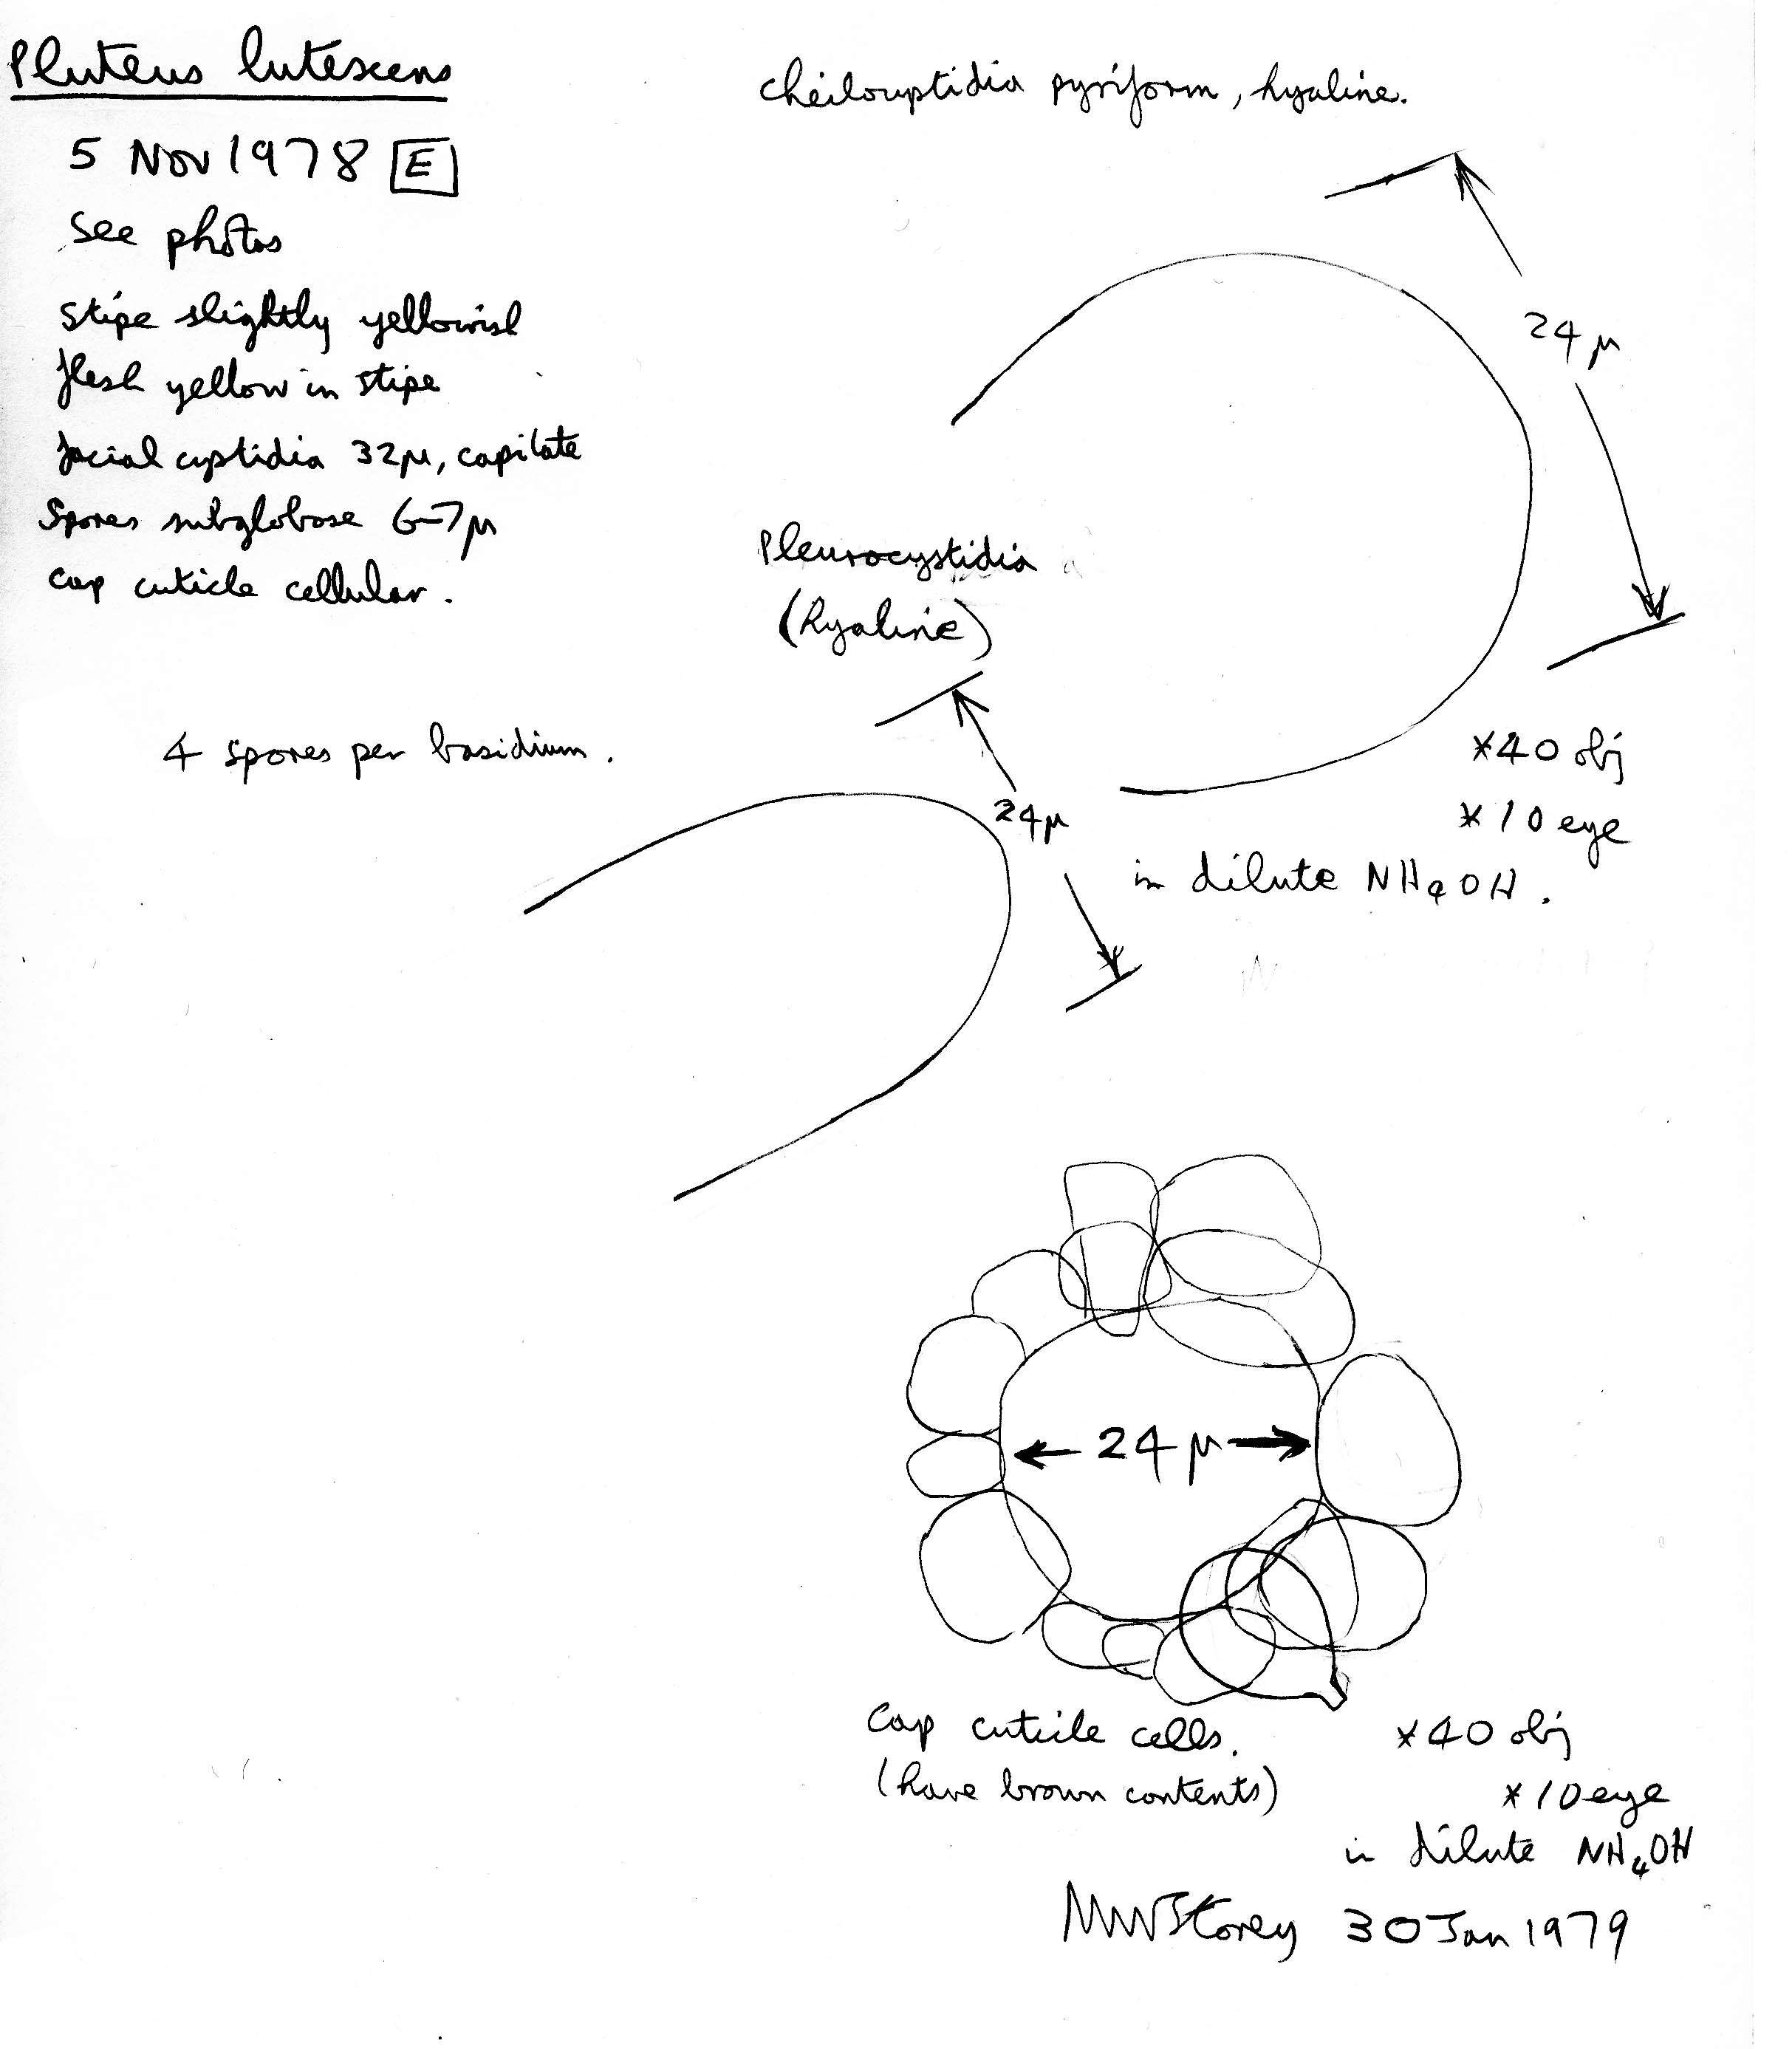 Pluteus lutescens
5 Nov 1978 E
See photos
Stipe slightly yellowish
flesh yellow in stipe
facial cystidia 32μ, capitate
Spores subglobose 6-7μ
Cap cuticle cellular.
4 spores per basidium.
Cheilocystidia pyriform, hyaline.
24μ
Pleurocystidia
(hyaline)
24μ
×40 obj
×10 eye
in dilute NH4OH.
24μ
Cap cuticle cells.
(have brown contents)
×40 obj
×10 eye
in dilute NH4OH
MWStorey 30 Jan 1979